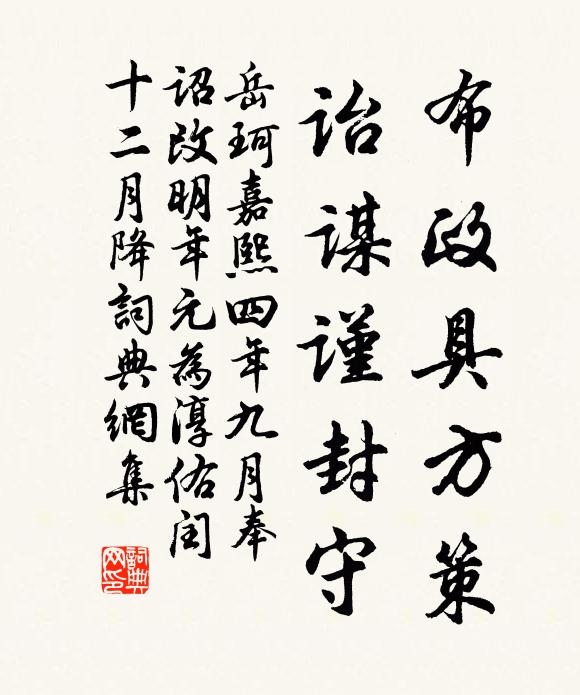 布政具方策
诒谋谨封守
岳珂嘉熙四年九月奉
诏改明年元為淳佑闰
十二月降詞典網集
詞典网印